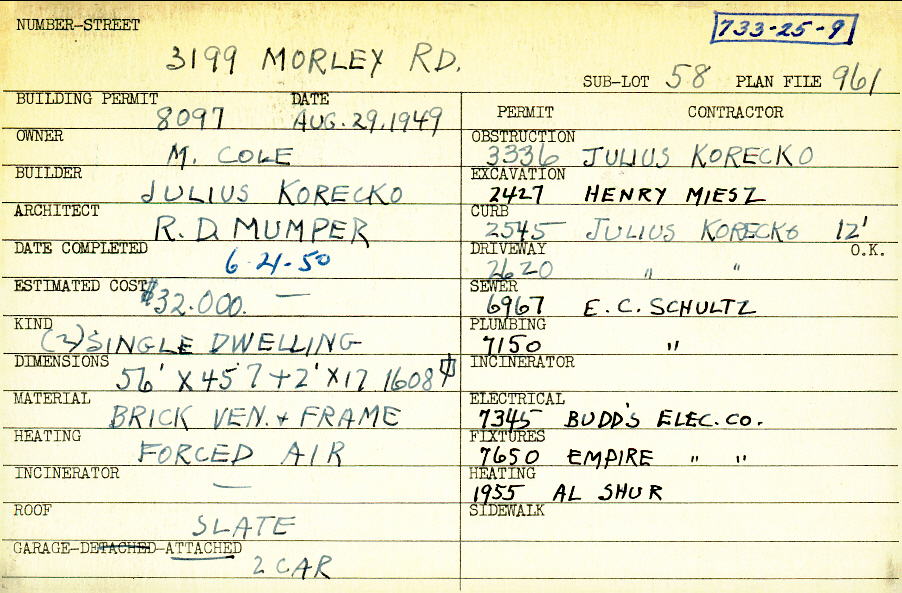 NUMBER-STREET
733-25-9
3199 MORLEY RD.
SUB-LOT 58 PLAN FILE 961
BUILDING PERMIT DATE
8097 AUG. 29, 1949
OWNER
M. COLE
BUILDER
JULIUS KORECKO
ARCHITECT
R. D. MUMPER
DATE COMPLETED
6-21-50
ESTIMATED COST
$32.000. —
KIND
(2) SINGLE DWELLING
DIMENSIONS
56' X 45'7 + 2' X 17 1608
MATERIAL
BRICK VEN. + FRAME
HEATING
FORCED AIR
INCINERATOR
—
ROOF
SLATE
GARAGE-DETACHED-ATTACHED
2 CAR
PERMIT CONTRACTOR
OBSTRUCTION
3336 JULIUS KORECKO
EXCAVATION
2427 HENRY MIESZ
CURB
2545 JULIUS KORECKO 12'
DRIVEWAY O.K.
2620 " "
SEWER
6967 E. C. SCHULTZ
PLUMBING
7150 "
INCINERATOR
ELECTRICAL
7345 BUDD'S ELEC. CO.
FIXTURES
7650 EMPIRE " "
HEATING
1955 AL SHUR
SIDEWALK